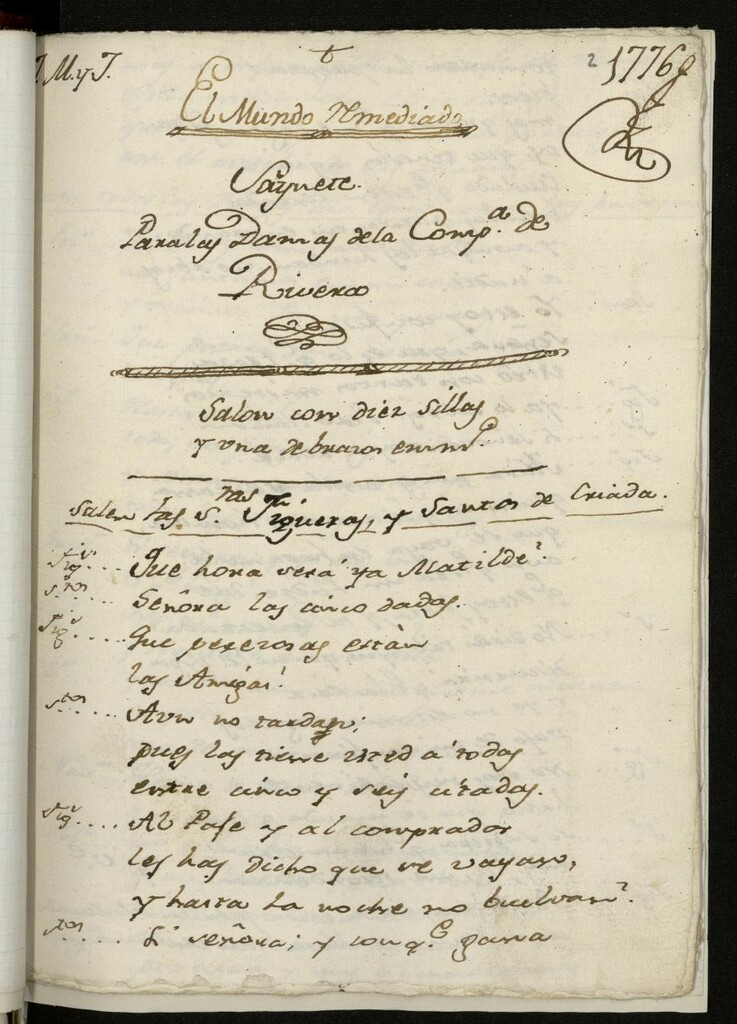 J. M. y J. † 2 1776
El Mundo Remediado
Saynete.
Para las Damas de la Comp.ª de
Rivera
Salon con diez sillas
y una de brazos en
Salen las S.ras Figueras, y Santos de Criada.
Fig.s.... Que hora será ya Matilde?
S.tos.... Señora las cinco dadas.
Fig.s.... Que perezosas están
las Amigas!
S.tos.... Aun no tardan;
pues las tiene usted á todas
entre cinco y seis citadas.
Fig.s.... Al Paje y al comprador
les has dicho que se vayan,
y hasta la noche no buelvan?
S.tos.... Si señora; y con q.e gana